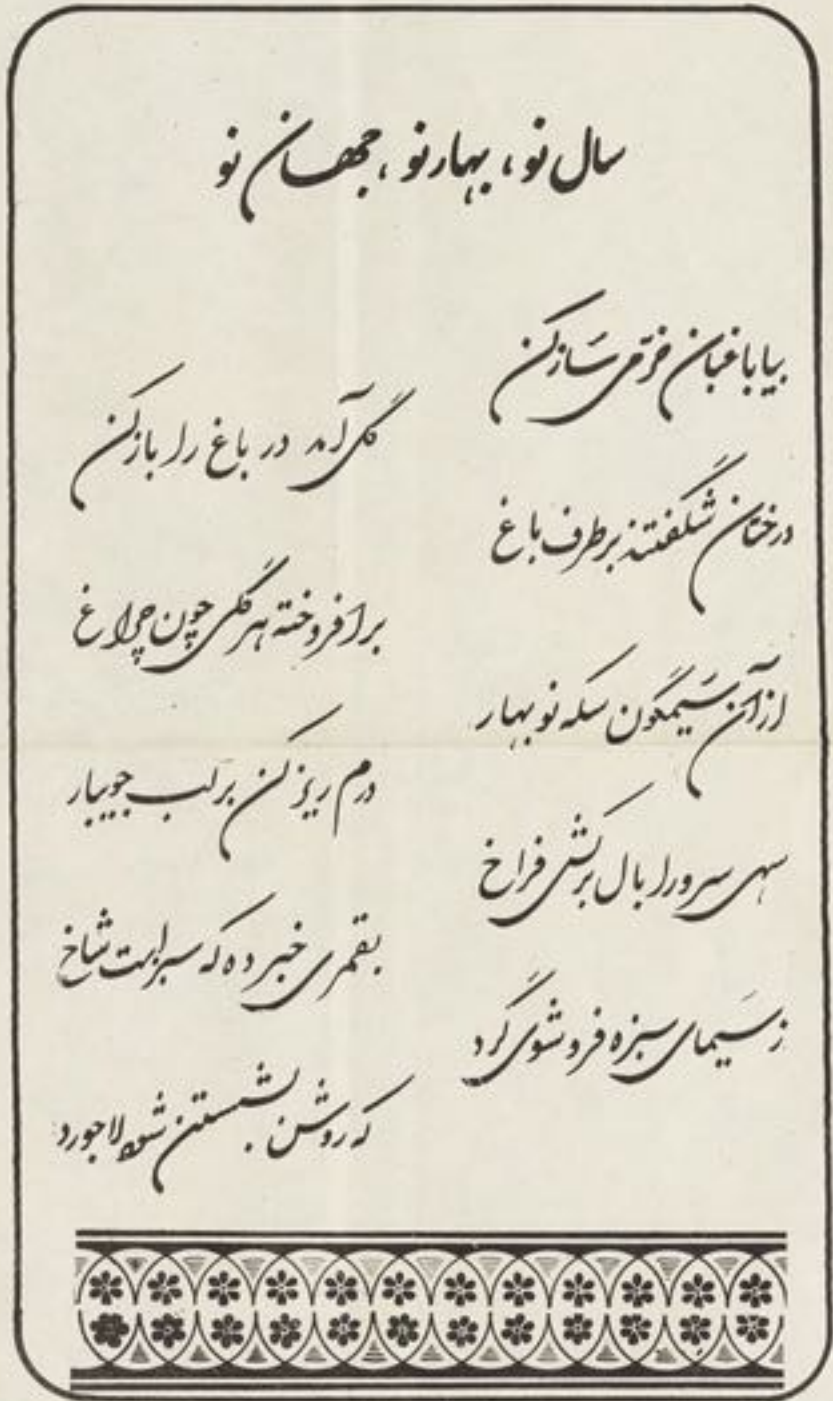 سال نو، بهار نو، جهان نو
بیا باغبان خرّمی ساز کن
گل آمد در باغ را باز کن
درختان شگفتند بر طرف باغ
برافروخته هر گلی چون چراغ
از آن سیمگون سکه نوبهار
درم ریز کن بر لب جویبار
سهی سرو را بال برکش فراخ
بقمری خبر ده که سبز است شاخ
ز سیمای سبزه فروشوی گرد
که روشن بشستن شود لاجورد